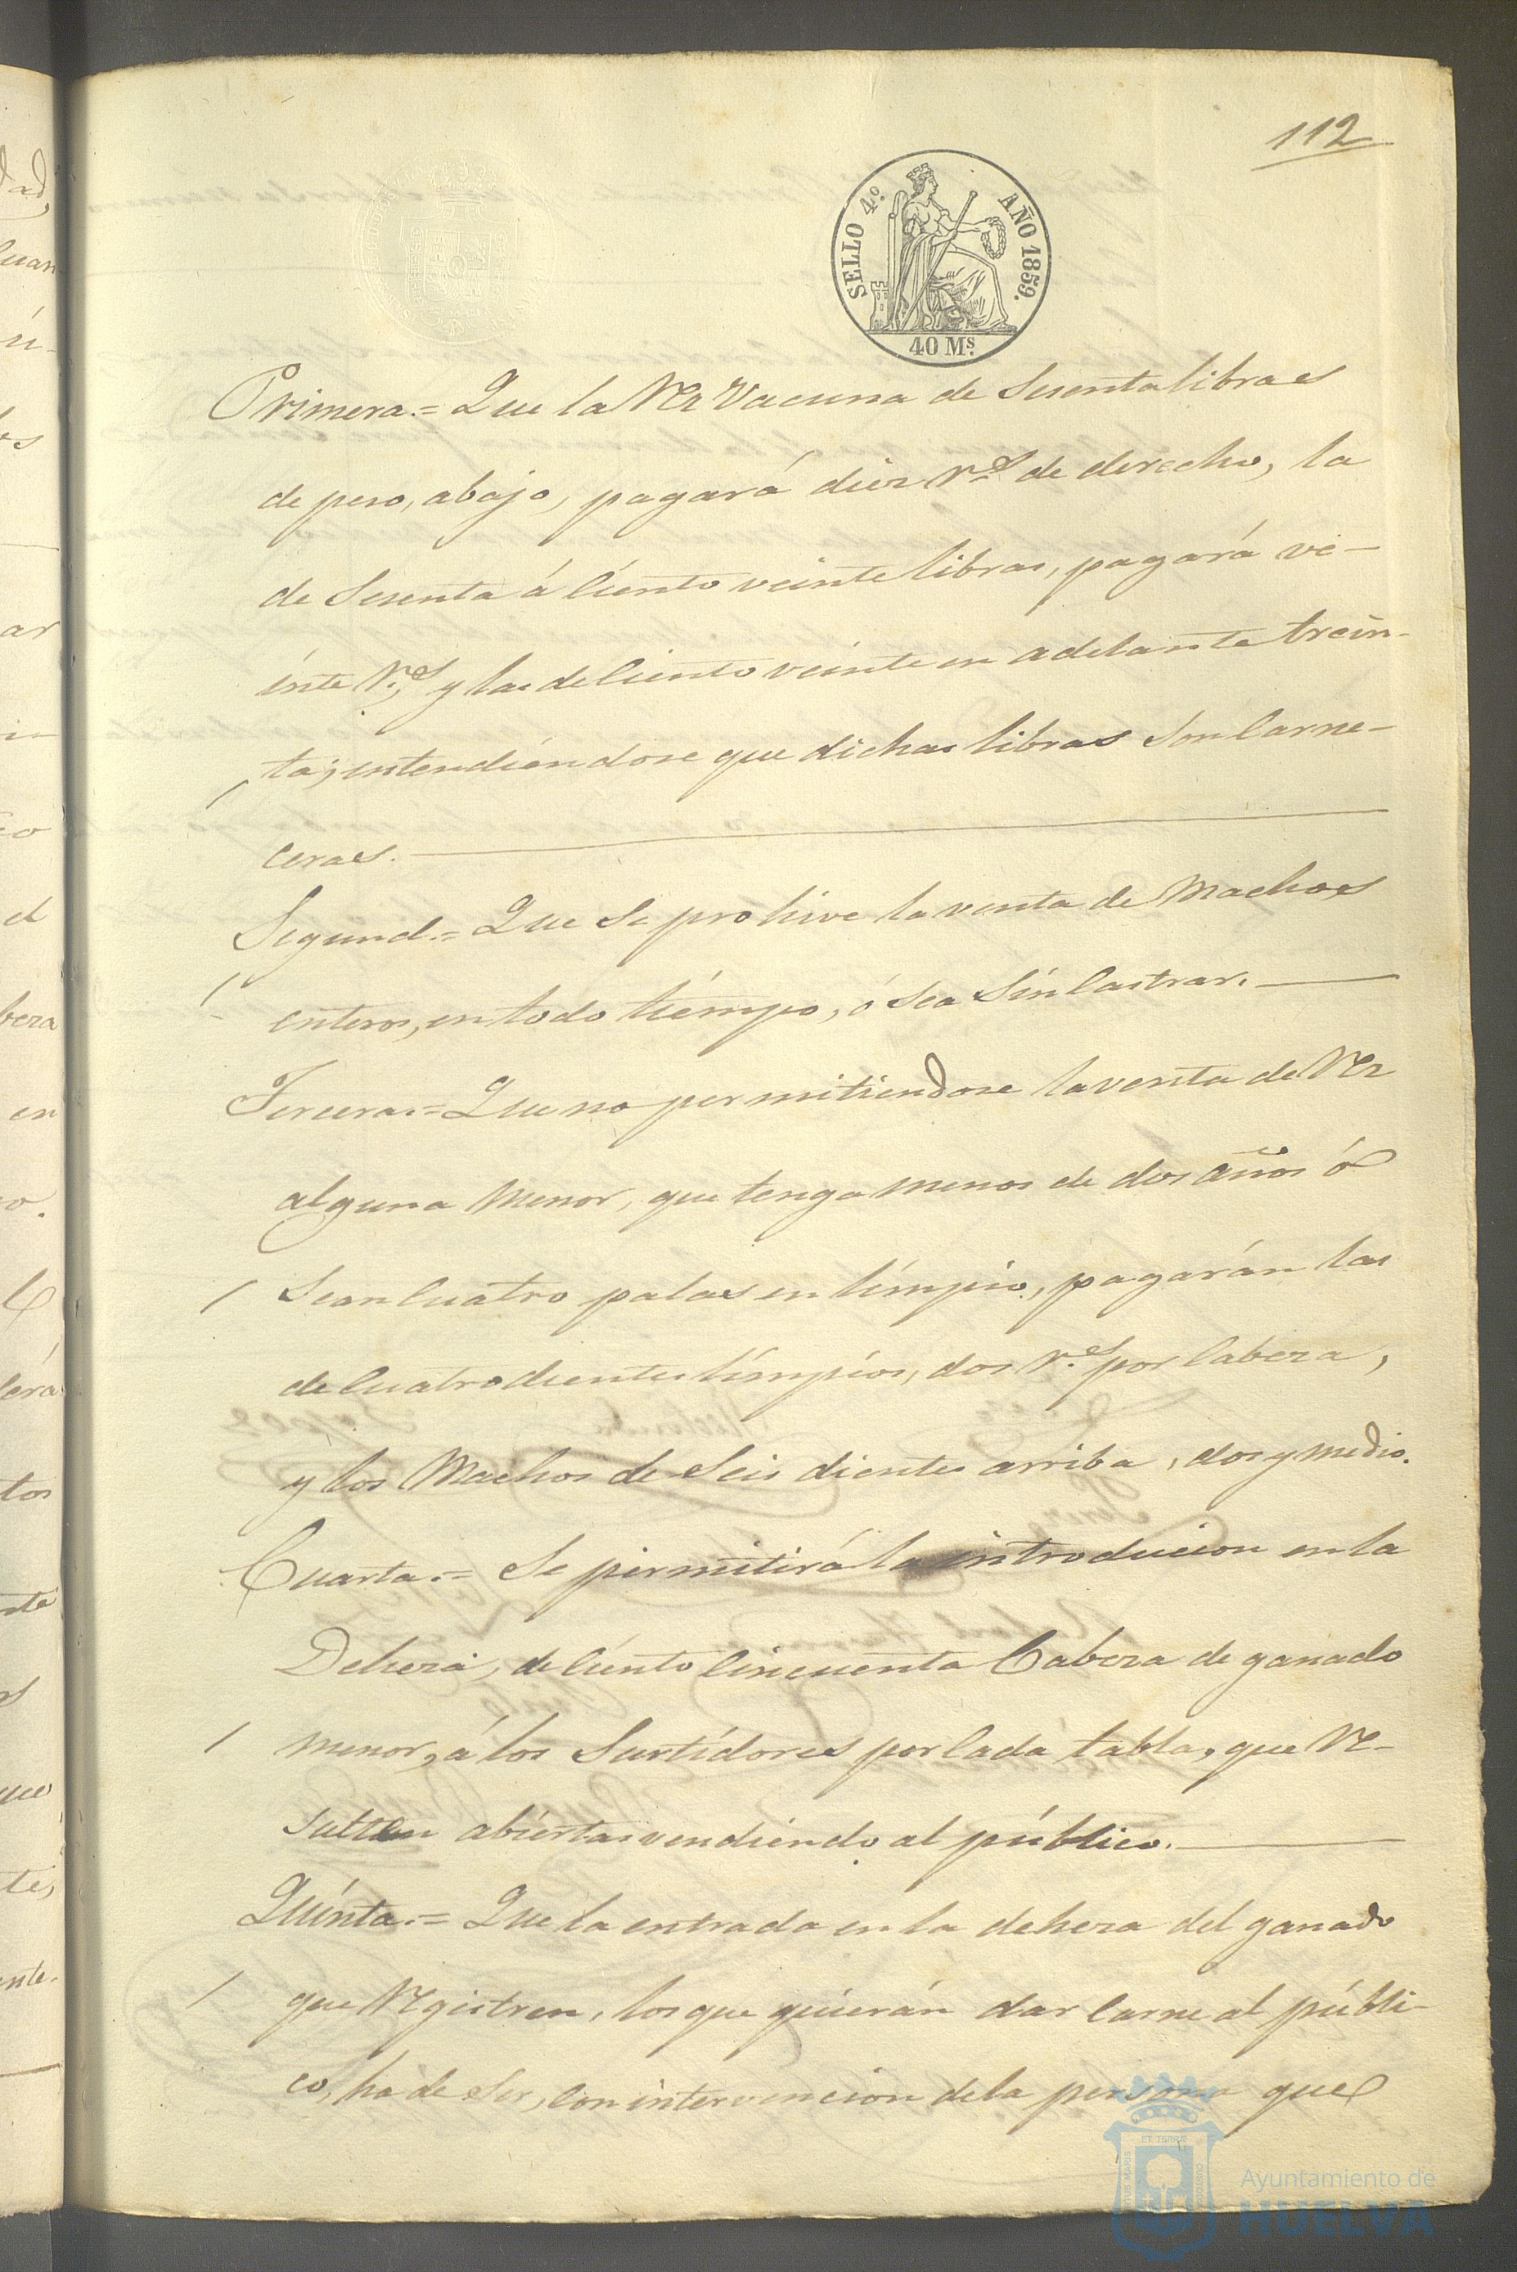 112
SELLO 4º. AÑO 1859.
40 Ms.
Primera.= Que la Res Vacuna de Sesenta libras
de peso, abajo, pagará diez rs. de derecho, la
de Sesenta á Ciento veinte libras, pagará ve-
inte rs. y las de Ciento veinte en adelante trein-
ta; entendiéndose que dichas libras Son Carne-
ceras.
Segund.= Que Se prohive la venta de Machos
enteros, en todo tiémpo, ó Sea Sín Castrar.
Tercera.= Que no permitiendose la venta de Res
alguna Menor, que tenga menos de dos años ó
Sean Cuatro palas en límpio, pagarán las
de Cuatro dientes límpios, dos rs. por Cabeza,
y los Machos de Seis dientes arriba, dos y medio.
Cuarta.= Se permitirá la introducion en la
Deheza, de Ciento Cincuenta Cabeza de ganado
menor, á los Surtídores por Cada tabla, que Re-
sulten abiertas vendiéndo al público.
Quínta.= Que la entrada en la deheza del ganado
que Registren, los que quierán dar Carne al públi-
co, ha de Ser, Con intervencion de la persona que
dad,
ú-
os
ar
in
co
el
beza
en
o.
tos
que
te,
ente.
ET TERRÆ
Ayuntamiento de
HUELVA